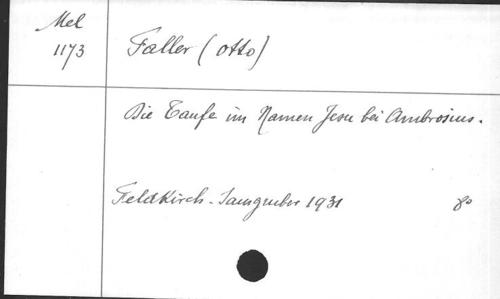 Mel
1173
Faller (Otto)
Die Taufe im Namen Jesu bei Ambrosius.
Feldkirch. Sausgruber 1931 8°